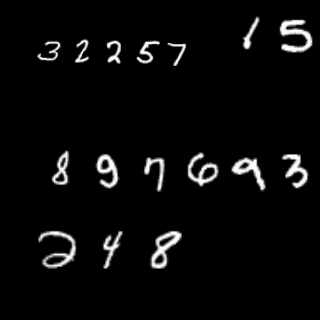 32257 15
897693
248